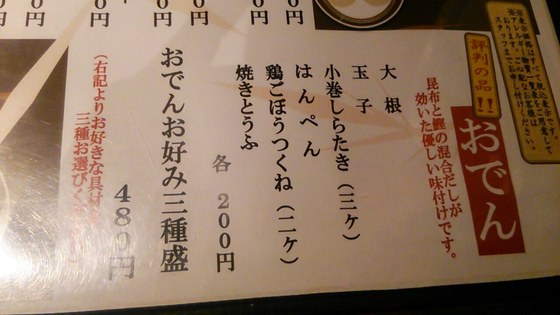 評判の品!!
おでん
昆布と鰹の混合だしが
効いた優しい味付けです。
大根
玉子
小巻しらたき(三ケ)
はんぺん
鶏ごぼうつくね(二ケ)
焼きとうふ
各 200円
おでんお好み三種盛
480円
(右記よりお好きな具材
三種お選びく
0円
0円
0円
0円
0円
0円